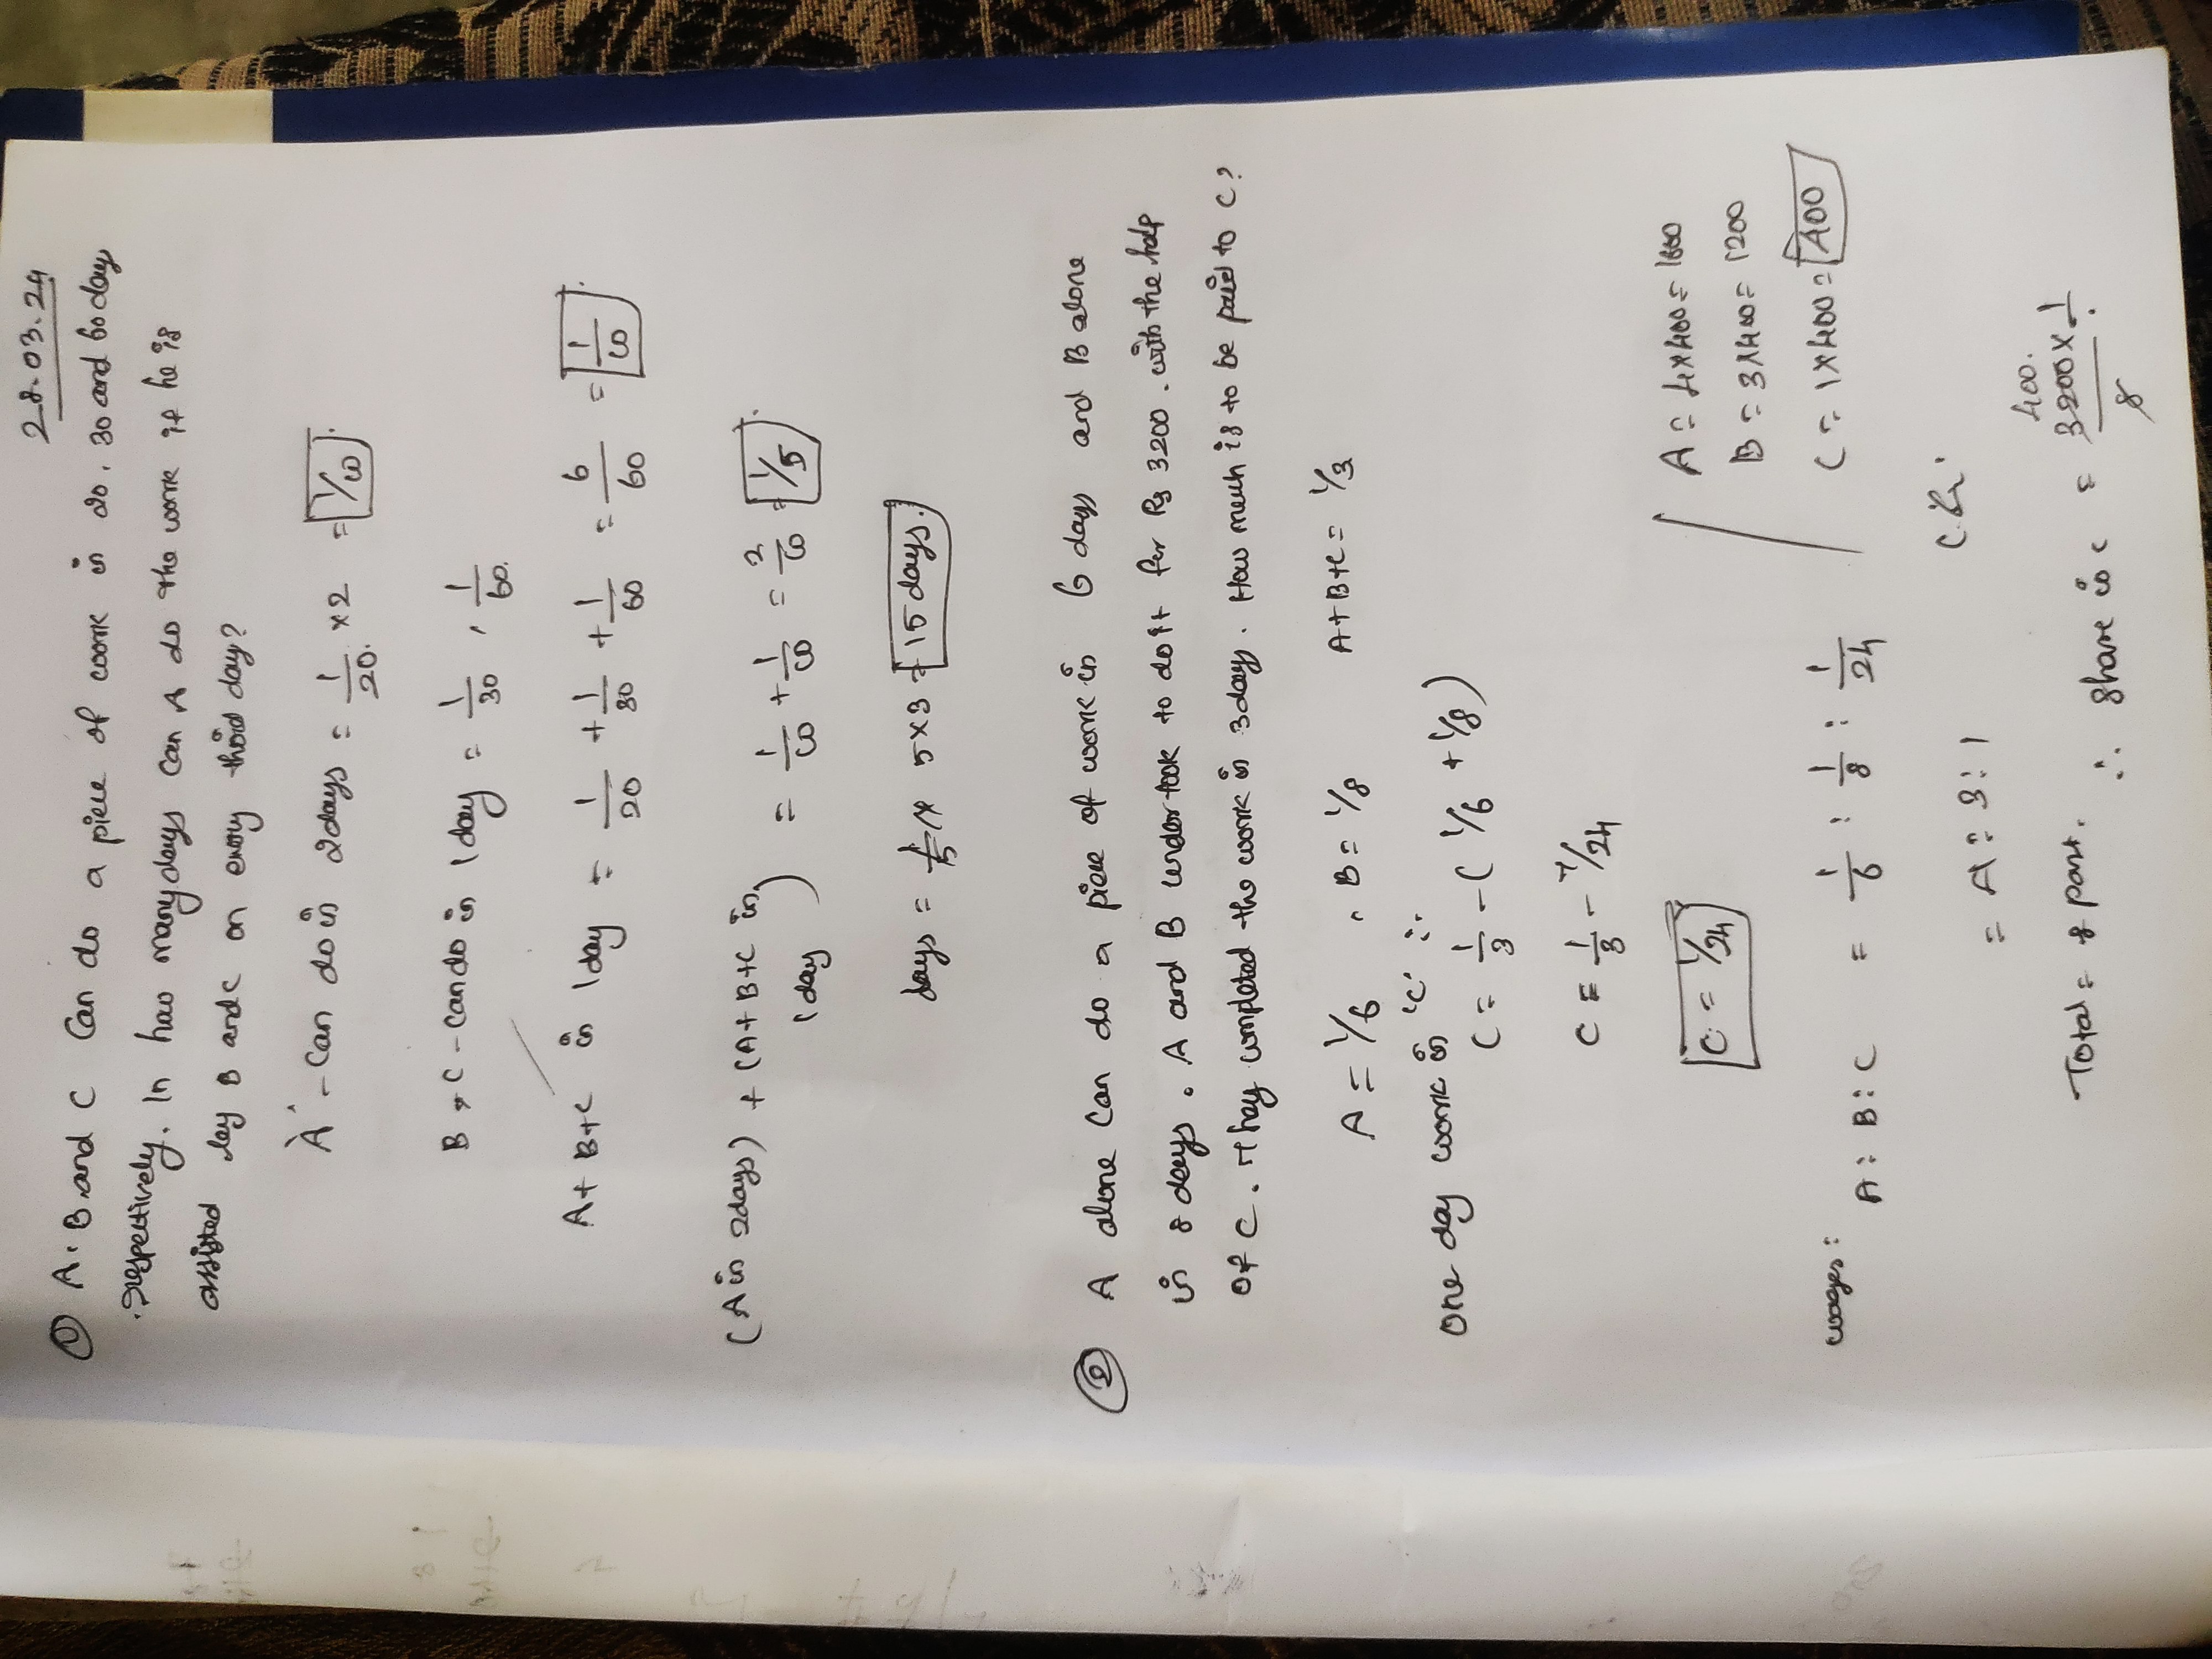 28.03.24
① A, B and C Can do a piece of work in 20, 30 and 60 days
respectively. In how many days Can A do the work if he is
assisted by B and C on every third day?
A' - Can do in 2 days = 1/20 × 2 = 1/10
B, C - Can do in 1 day = 1/30 , 1/60
A + B + C in 1 day = 1/20 + 1/30 + 1/60 = 6/60 = 1/10
(A in 2 days) + (A + B + C in 1 day) = 1/10 + 1/10 = 2/10 = 1/5
days = 5 × 3 = 15 days.
② A alone Can do a piece of work in 6 days and B alone
in 8 days. A and B under took to do it for Rs 3200. with the help
of C. They completed the work in 3 days. How much is to be paid to C?
A = 1/6 , B = 1/8 A + B + C = 1/3
One day work in 'C' :-
C = 1/3 - ( 1/6 + 1/8 )
C = 1/3 - 7/24
C = 1/24
A = 4 × 400 = 1600
B = 3 × 400 = 1200
C = 1 × 400 = 400
wages :
A : B : C = 1/6 : 1/8 : 1/24
= 4 : 3 : 1
Total = 8 part.
400.
∴ Share in C = 3200 × 1/8